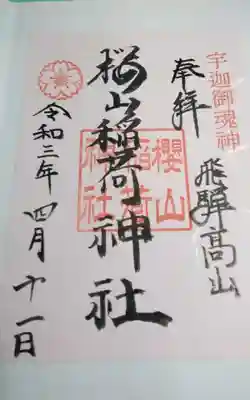 宇迦御魂神
奉拝
飛騨高山
桜山稲荷神社
櫻山
稲荷
神社
令和三年四月十一日